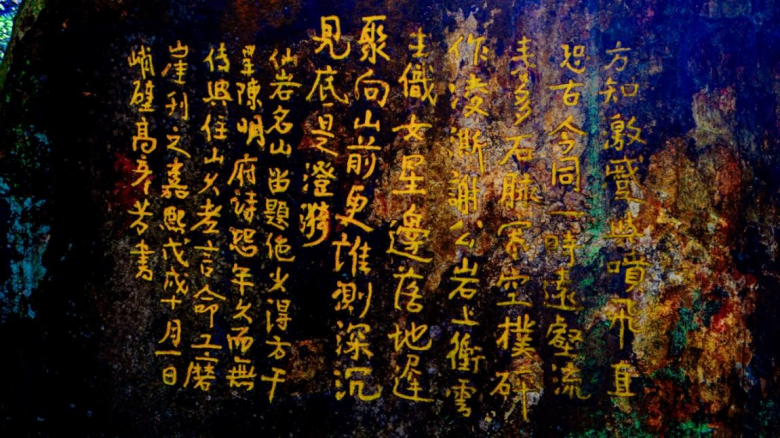 方知激蹙與噴飛直
恐古今同一時遠壑流
来多石脉寒空撲碎
作凌澌謝公岩上衝雲
去織女星邊落地遲
聚向山前更誰測深沉
見底是澄漪
仙岩名山題少得方干
呈陳明府詩恐年久而無
傳與住山老言命工磨
崖刊之嘉熙戊戌十月一日
峭壁高彦芳書